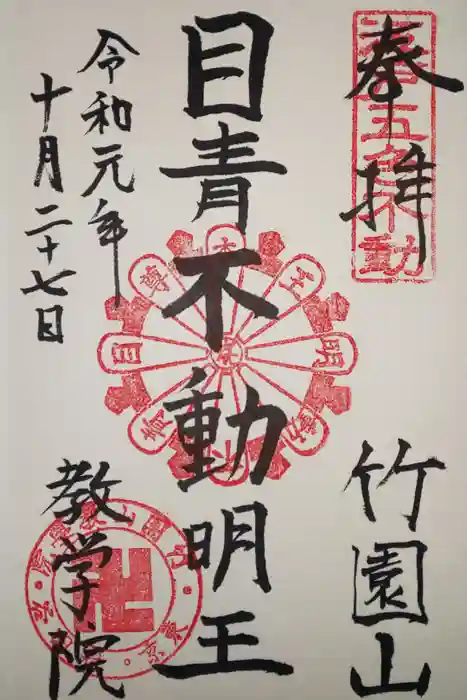 奉拝
五色不動
竹園山
目青不動明王
目青不動明王尊
令和元年
十月二十七日
教学院